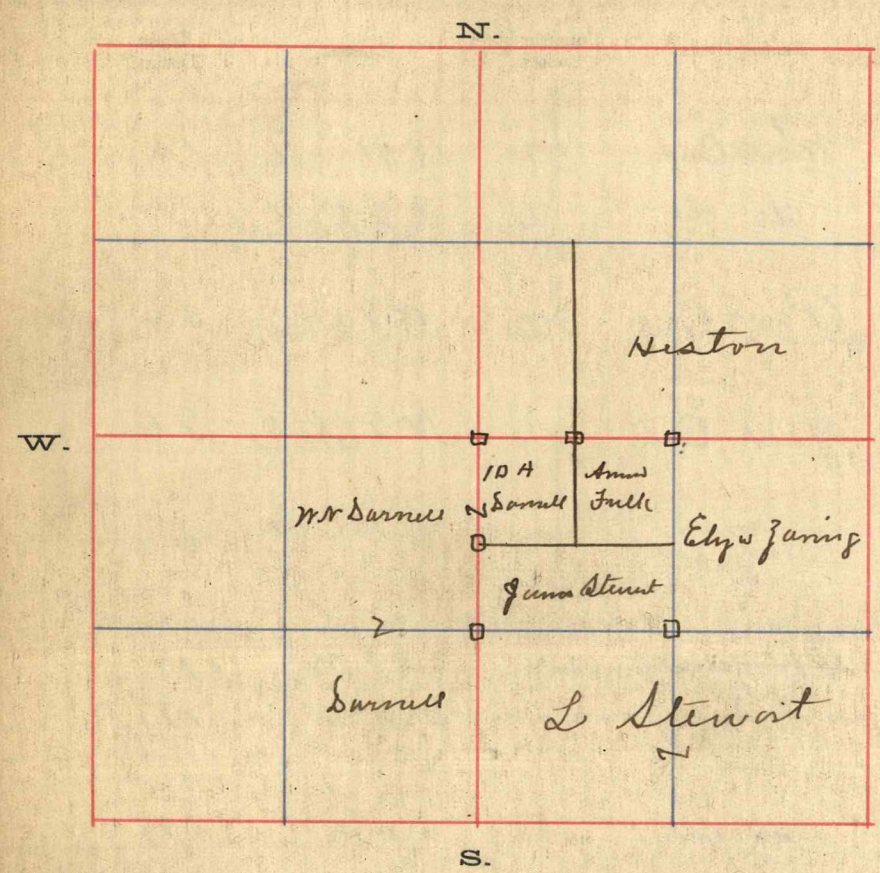 N.
Heston
W.
I D A
Darnell
Fulk
W N Darnell
Ely w Zaring
James Stewart
Darnell
L Stewart
S.